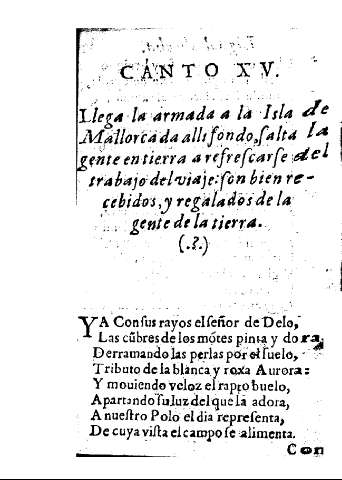 CANTO XV.
Llega la armada a la Isla de
Mallorca da alli fondo, ſalta la
gente en tierra a refreſcarſe del
trabajo del viaje: ſon bien re-
cebidos, y regalados de la
gente de la tierra.
(.?.)
YA Con ſus rayos el ſeñor de Delo,
Las cũbres de los mótes pinta y dora,
Derramando las perlas por el ſuelo,
Tributo de la blanca y roxa Aurora:
Y mouiendo veloz el rapto buelo,
Apartando ſu luz del que la adora,
A nueſtro Polo el dia repreſenta,
De cuya viſta el campo ſe alimenta.
Con